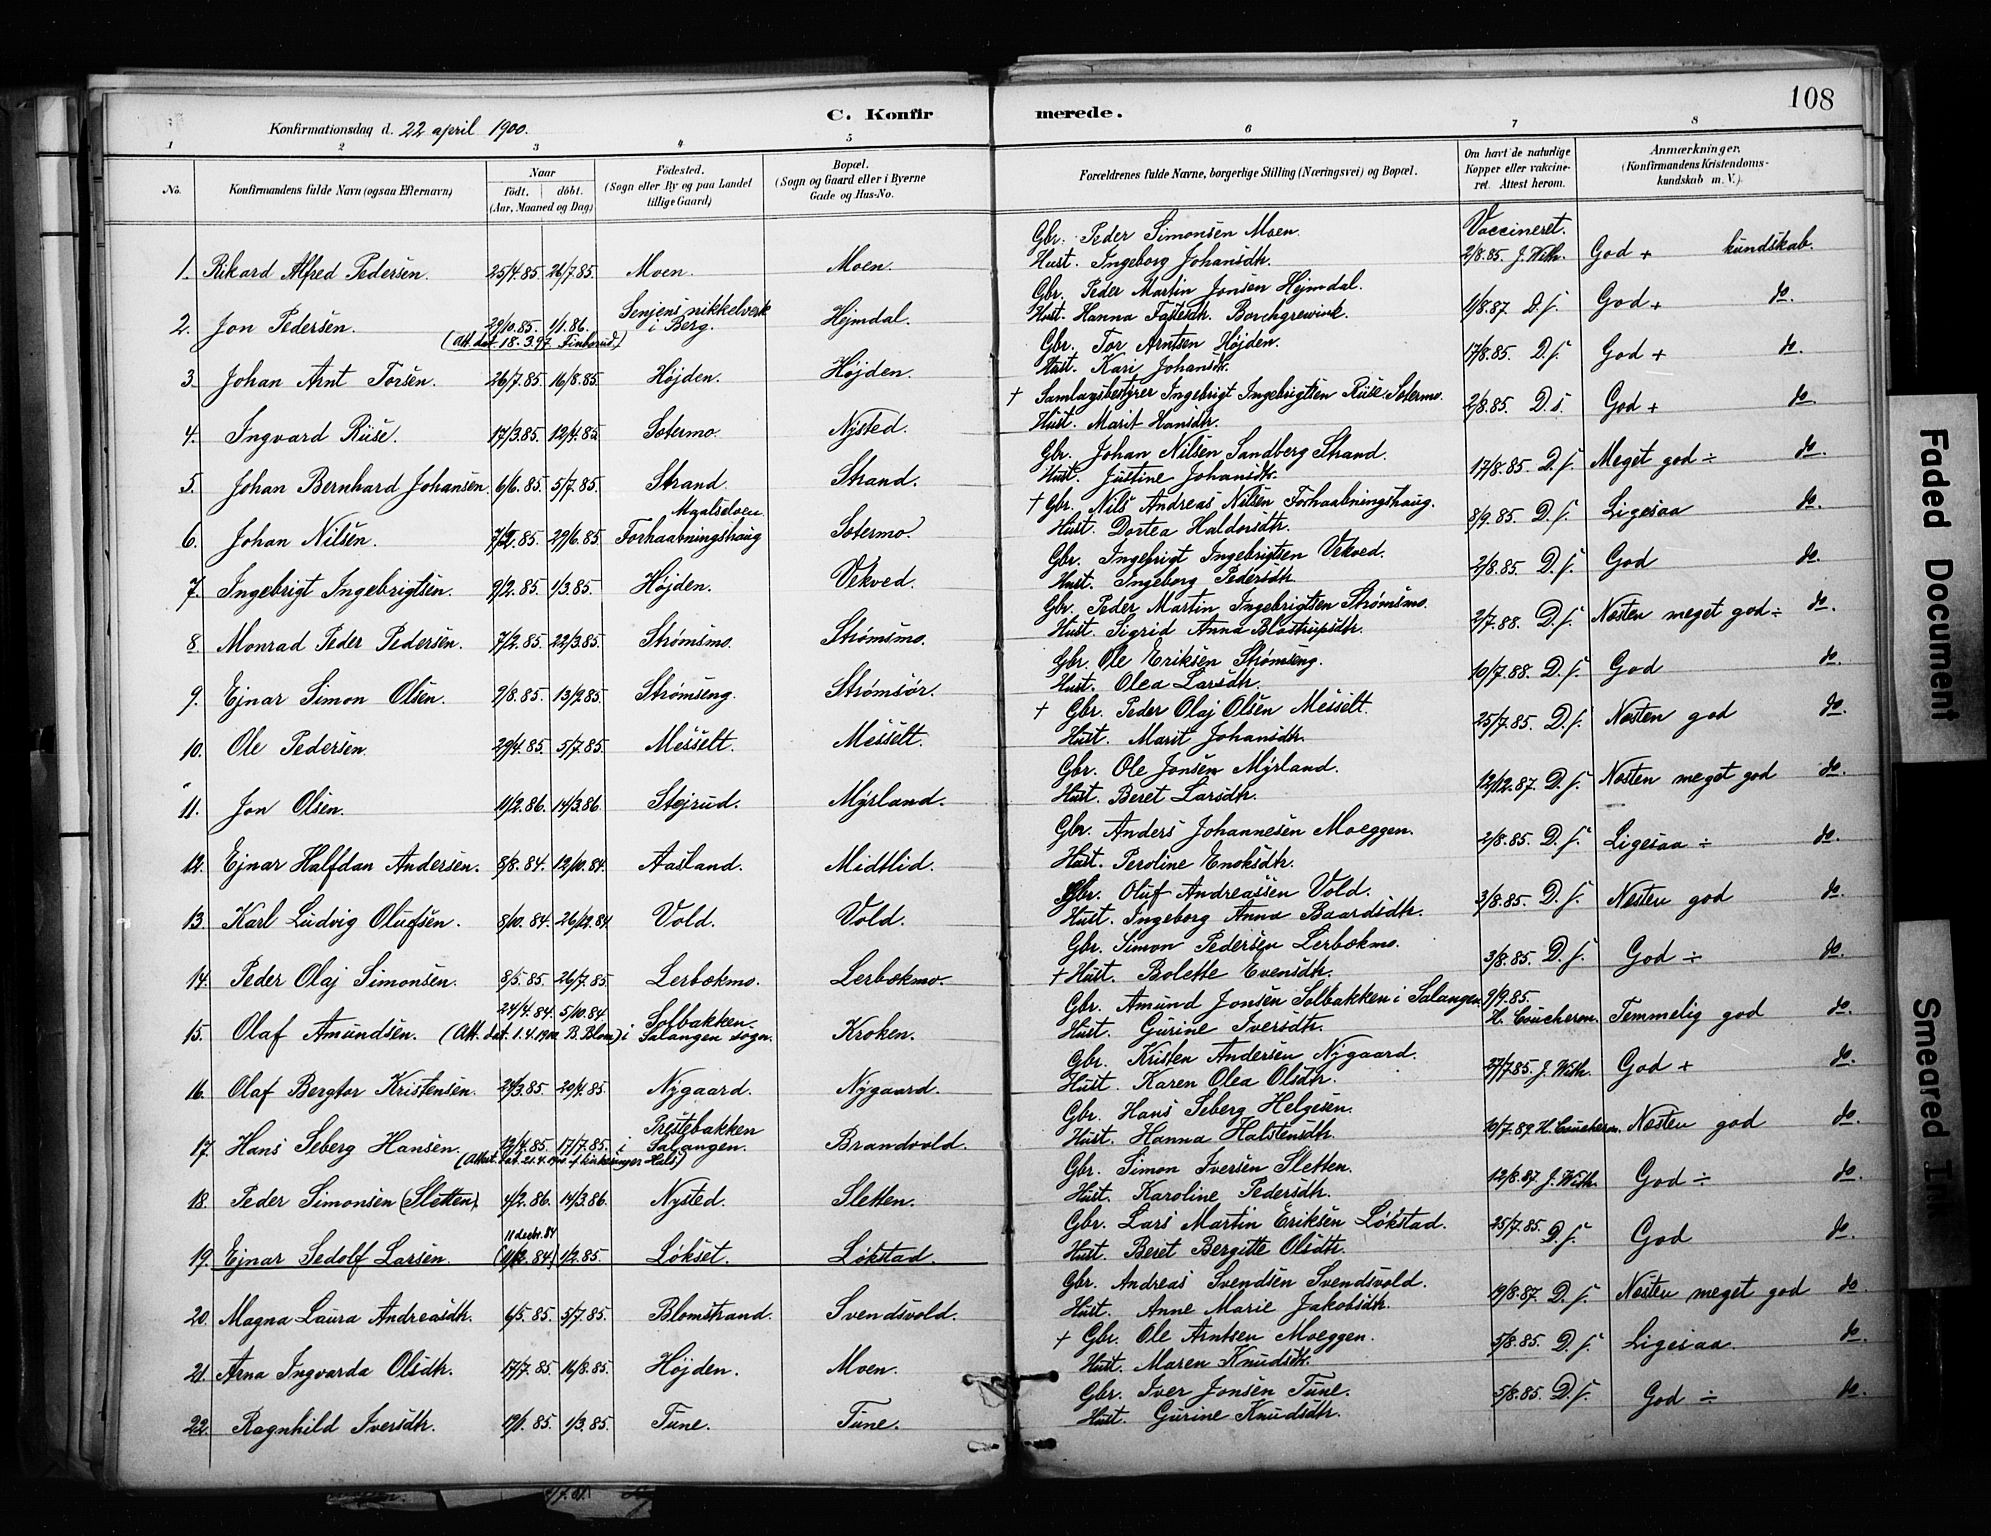 108
C. Konfirmerede.
Konfirmationsdag d. 22 april 1900.
1 2 3 4 5 6 7 8
No. Konfirmandens fulde Navn (ogsaa Efternavn) Naar födt. döbt. (Aar, Maaned og Dag) Födested. (Sogn eller By og paa Landet tillige Gaard) Bopæl. (Sogn og Gaard eller i Byerne Gade og Hus-No. Forældrenes fulde Navne, borgerlige Stilling (Næringsvei) og Bopæl. Om havt de naturlige Kopper eller vaccineret. Attest herom. Anmærkninger. (Konfirmandens Kristendomskundskab m. V.)
Gbr. Peder Simonsen Moen. Vaccineret.
1. Rikard Alfred Pedersen. 25/4.85. 26/7.85. Moen. Moen. Hust. Ingeborg Johansdtr. 2/8.85. J. With. God + kundskab.
Gbr. Peder Martin Jonsen Hejmdal.
2. Jon Pedersen. 29/10.85. 1/1.86. Senjens nikkelverk i Berg. Hejmdal. Hust. Hanna Borchgrewink. 11/8.87 D.s. God + do.
(Att. dat. 18.3.97)
Gbr. Tor Arntsen Højden.
3. Johan Arnt Torsen. 26/7.85. 16/8.85. Højden. Højden. Hust. Kari Johansdtr. 17/8.85. D.s. God + do.
+ Samlagsbestyrer Ingebrigt Ingebrigtsen Riise Sætermo.
4. Ingvard Riise. 17/3.85. 12/4.85. Sætermo. Nysted. Hust. Marit Hansdtr. 2/8.85. D.s. God + do.
Gbr. Johan Nilsen Sandberg Strand.
5. Johan Bernhard Johansen. 6/6.85. 5/7.85. Strand. Strand. Hust. Justine Johansdtr. 17/8.85. D.s. Meget god ÷ do.
+ Gbr. Nils Andreas Nilsen Forhaabningshaug.
6. Johan Nilsen. 7/2.85. 29/6.85. Maalselven Forhaabningshaug Sætermo. Hust. Dortea Haldorsdtr. 8/9.85. D.s. Ligesaa do.
Gbr. Ingebrigt Ingebrigtsen Vekved.
7. Ingebrigt Ingebrigtsen. 9/2.85. 1/3.85. Højden. Vekved. Hust. Ingeborg Pedersdtr. 2/8.85. D.s. God do.
Gbr. Peder Martin Ingebrigtsen Strømsmo.
8. Monrad Peder Pedersen. 7/2.85. 22/3.85. Strømsmo. Strømsmo. Hust. Sigrid Anna Blostrupsdtr. 2/7.88. D.s. Næsten meget god ÷ do.
Gbr. Ole Eriksen Strømseng.
9. Ejnar Simon Olsen. 2/8.85. 13/9.85. Strømseng. Strømsør. Hust. Olea Larsdtr. 10/7.88. D.s. God do.
+ Gbr. Peder Olaj Olsen Messelt.
10. Ole Pedersen. 29/4.85. 5/7.85. Messelt. Messelt. Hust. Marit Johansdtr. 25/7.85. D.s. Næsten god do.
Gbr. Ole Jonsen Myrland.
11. Jon Olsen. 11/2.86. 14/3.86. Stejrud. Myrland. Hust. Beret Larsdtr. 12/12.87. D.s. Næsten meget god do.
Gbr. Anders Johannesen Moeggen.
12. Ejnar Halfdan Andersen. 8/8.84. 12/10.84. Aasland. Midtlid. Hust. Peroline Enoksdtr. 2/8.85. D.s. Ligesaa ÷ do.
Gbr. Oluf Andreassen Vold.
13. Karl Ludvig Olufsen. 8/10.84. 26/12.84. Vold. Vold. Hust. Ingeborg Anna Baardsdtr. 3/8.85. D.s. Næsten god do.
Gbr. Simon Pedersen Lerbækmo.
14. Peder Olaj Simonsen. 8/5.85. 26/7.85. Lerbækmo. Lerbækmo. + Hust. Bolette Evensdtr. 3/8.85. D.s. God ÷ do.
Gbr. Amund Jonsen Solbakken i Salangen.
15. Olaf Amundsen. 24/4.84. 5/10.84. (Att. dat. 1.4.1900 B. Blom) Solbakken i Salangen sogn. Kroken. Hust. Gurine Iversdtr. 9/9.85. H. Coucheron. Temmelig god do.
Gbr. Kristen Andersen Nygaard.
16. Olaf Bergtor Kristensen. 24/3.85. 20/4.85. Nygaard. Nygaard. Hust. Karen Olea Olsdtr. 27/7.85. J. With. God + do.
Gbr. Hans Seberg Helgesen.
17. Hans Seberg Hansen. 12/4.85. 17/7.85. Prestebakken i Salangen. Brandvold. Hust. Hanna Halstensdtr. 10/7.89. H. Coucheron. Næsten god do.
Gbr. Simon Iversen Sletten.
18. Peder Simonsen (Sletten). 4/2.86. 14/3.86. Nysted. Sletten. Hust. Karoline Pedersdtr. 12/8.87. J. With. God ÷ do.
Gbr. Lars Martin Eriksen Løkstad.
11 decbr. 84
19. Ejnar Sedolf Larsen. (11/12.84) 1/2.85. Løkset. Løkstad. Hust. Beret Bergitte Olsdtr. 25/7.85. D.s. God do.
Gbr. Andreas Svendsen Svendsvold.
20. Magna Laura Andreasdtr. 6/5.85. 5/7.85. Blomstrand. Svendsvold. Hust. Anne Marie Jakobsdtr. 19/8.87. D.s. Næsten meget god do.
+ Gbr. Ole Arntsen Moeggen.
21. Arna Ingvarda Olsdtr. 17/7.85. 16/8.85. Højden. Moen. Hust. Maren Knudsdtr. 5/8.85. D.s. Ligesaa. do.
Gbr. Iver Jonsen Tune.
22. Ragnhild Iversdtr. 19/1.85. 1/3.85. Tune. Tune. Hust. Gurine Knudsdtr. 5/8.85. D.s. God ÷ do.
Faded Document
Smeared Ink